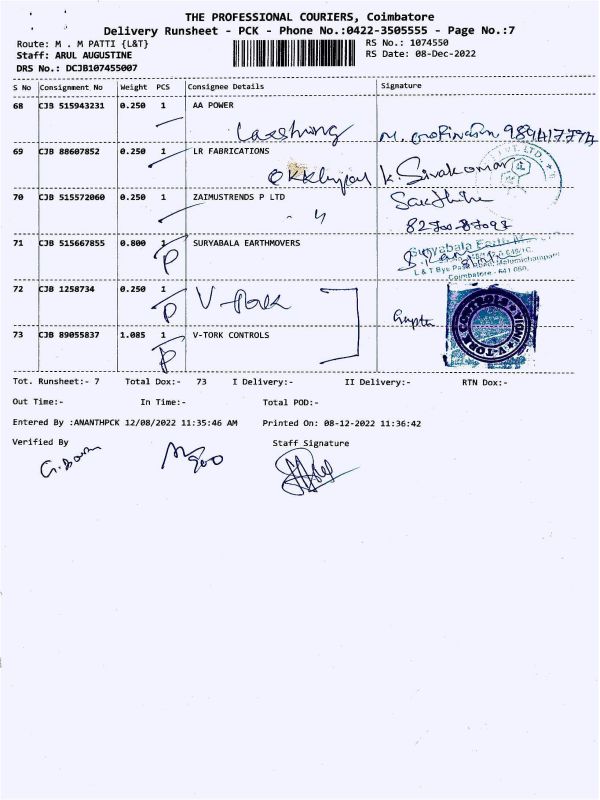 THE PROFESSIONAL COURIERS, Coimbatore
Delivery Runsheet - PCK - Phone No.:0422-3505555 - Page No.:7
Route: M . M PATTI {L&T} RS No.: 1074550
Staff: ARUL AUGUSTINE RS Date: 08-Dec-2022
DRS No.: DCJB107455007
S No Consignment No Weight PCS Consignee Details Signature
68 CJB 515943231 0.250 1 AA POWER
69 CJB 88607852 0.250 1 LR FABRICATIONS
K. Sivakumar
70 CJB 515572060 0.250 1 ZAIMUSTRENDS P LTD
71 CJB 515667855 0.800 1 SURYABALA EARTHMOVERS
P
Suryabala Earth
Coimbatore - 641 050.
72 CJB 1258734 0.250 1 V-Tork
P
Gupta
73 CJB 89055837 1.085 1 V-TORK CONTROLS
P
Tot. Runsheet:- 7 Total Dox:- 73 I Delivery:- II Delivery:- RTN Dox:-
Out Time:- In Time:- Total POD:-
Entered By :ANANTHPCK 12/08/2022 11:35:46 AM Printed On: 08-12-2022 11:36:42
Verified By Staff Signature